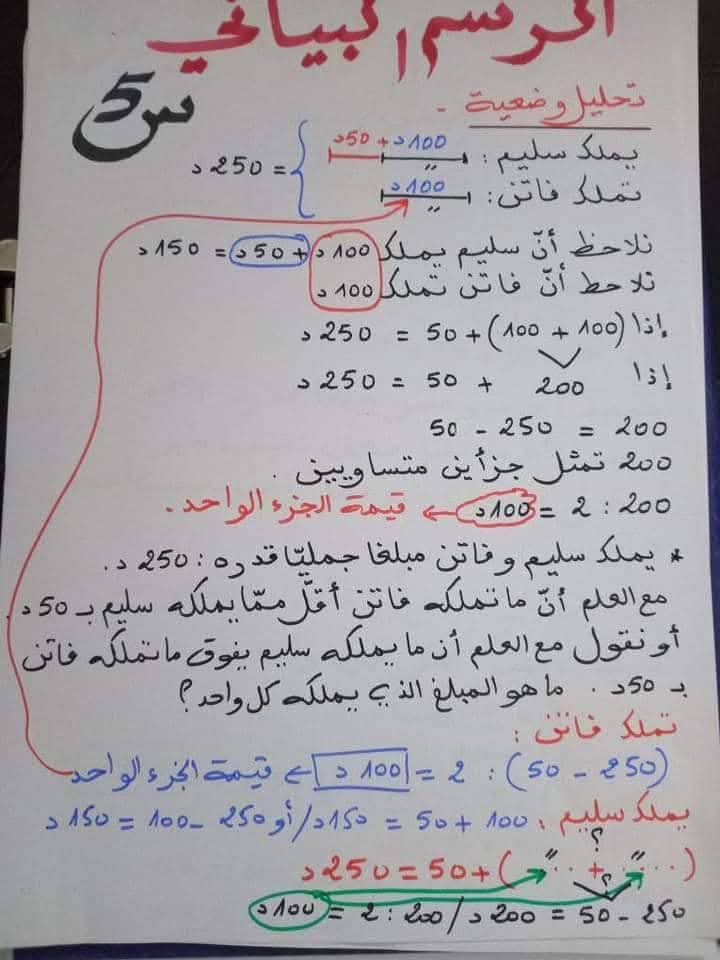 الرسم البياني
س5
تحليل وضعية -
يملك سليم: 100د + 50د
تملك فاتن: 100د
= 250د
نلاحظ أنّ سليم يملك 100د + 50د = 150د
نلاحظ أنّ فاتن تملك 100د
إذا (100 + 100) + 50 = 250د
إذا 200 + 50 = 250د
200 = 250 - 50
200 تمثل جزأين متساويين.
200 : 2 = 100د ← قيمة الجزء الواحد.
* يملك سليم وفاتن مبلغا جمليّا قدره: 250د.
مع العلم أنّ ما تملكه فاتن أقلّ ممّا يملكه سليم بـ 50د.
أو نقول مع العلم أن ما يملكه سليم يفوق ما تملكه فاتن
بـ 50د. ما هو المبلغ الذي يملكه كل واحد؟
تملك فاتن:
(250 - 50) : 2 = 100د ← قيمة الجزء الواحد
يملك سليم: 100 + 50 = 150د/ أو 250 - 100 = 150د
؟
(.... + ....) + 50 = 250د
؟
250 - 50 = 200د / 200 : 2 = 100د